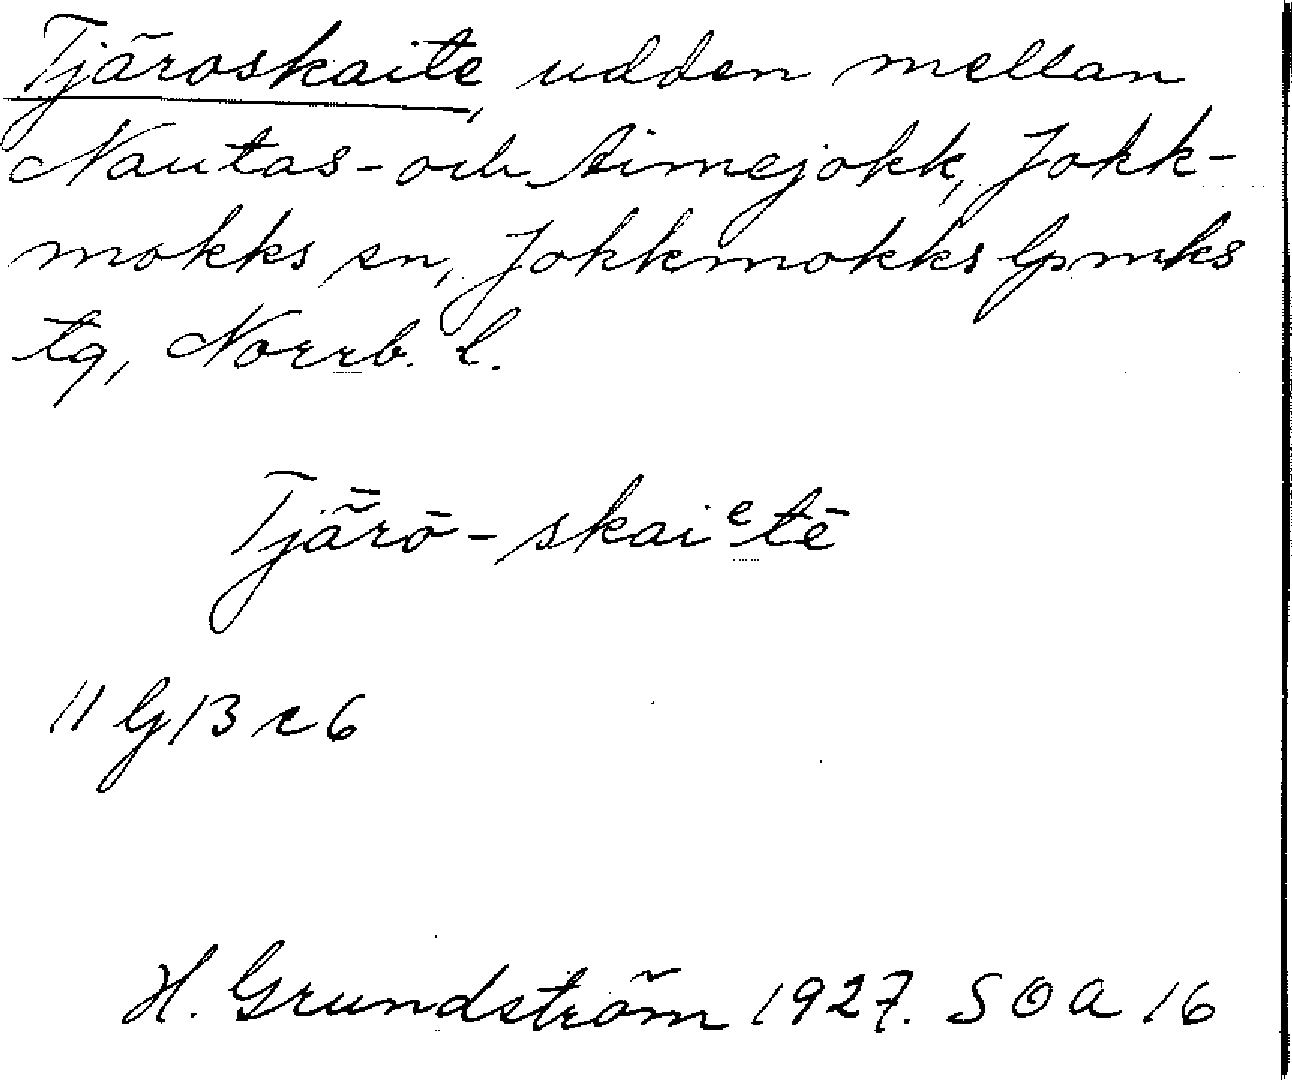 Tjäroskaite, udden mellan
Nautas- och Aimejokk, Jokk-
mokks sn, Jokkmokks lpmks
tg, Norrb. l.
Tjǟrō-skaiᵉtē
11 G 13 c 6
H. Grundström 1927. SOA 16